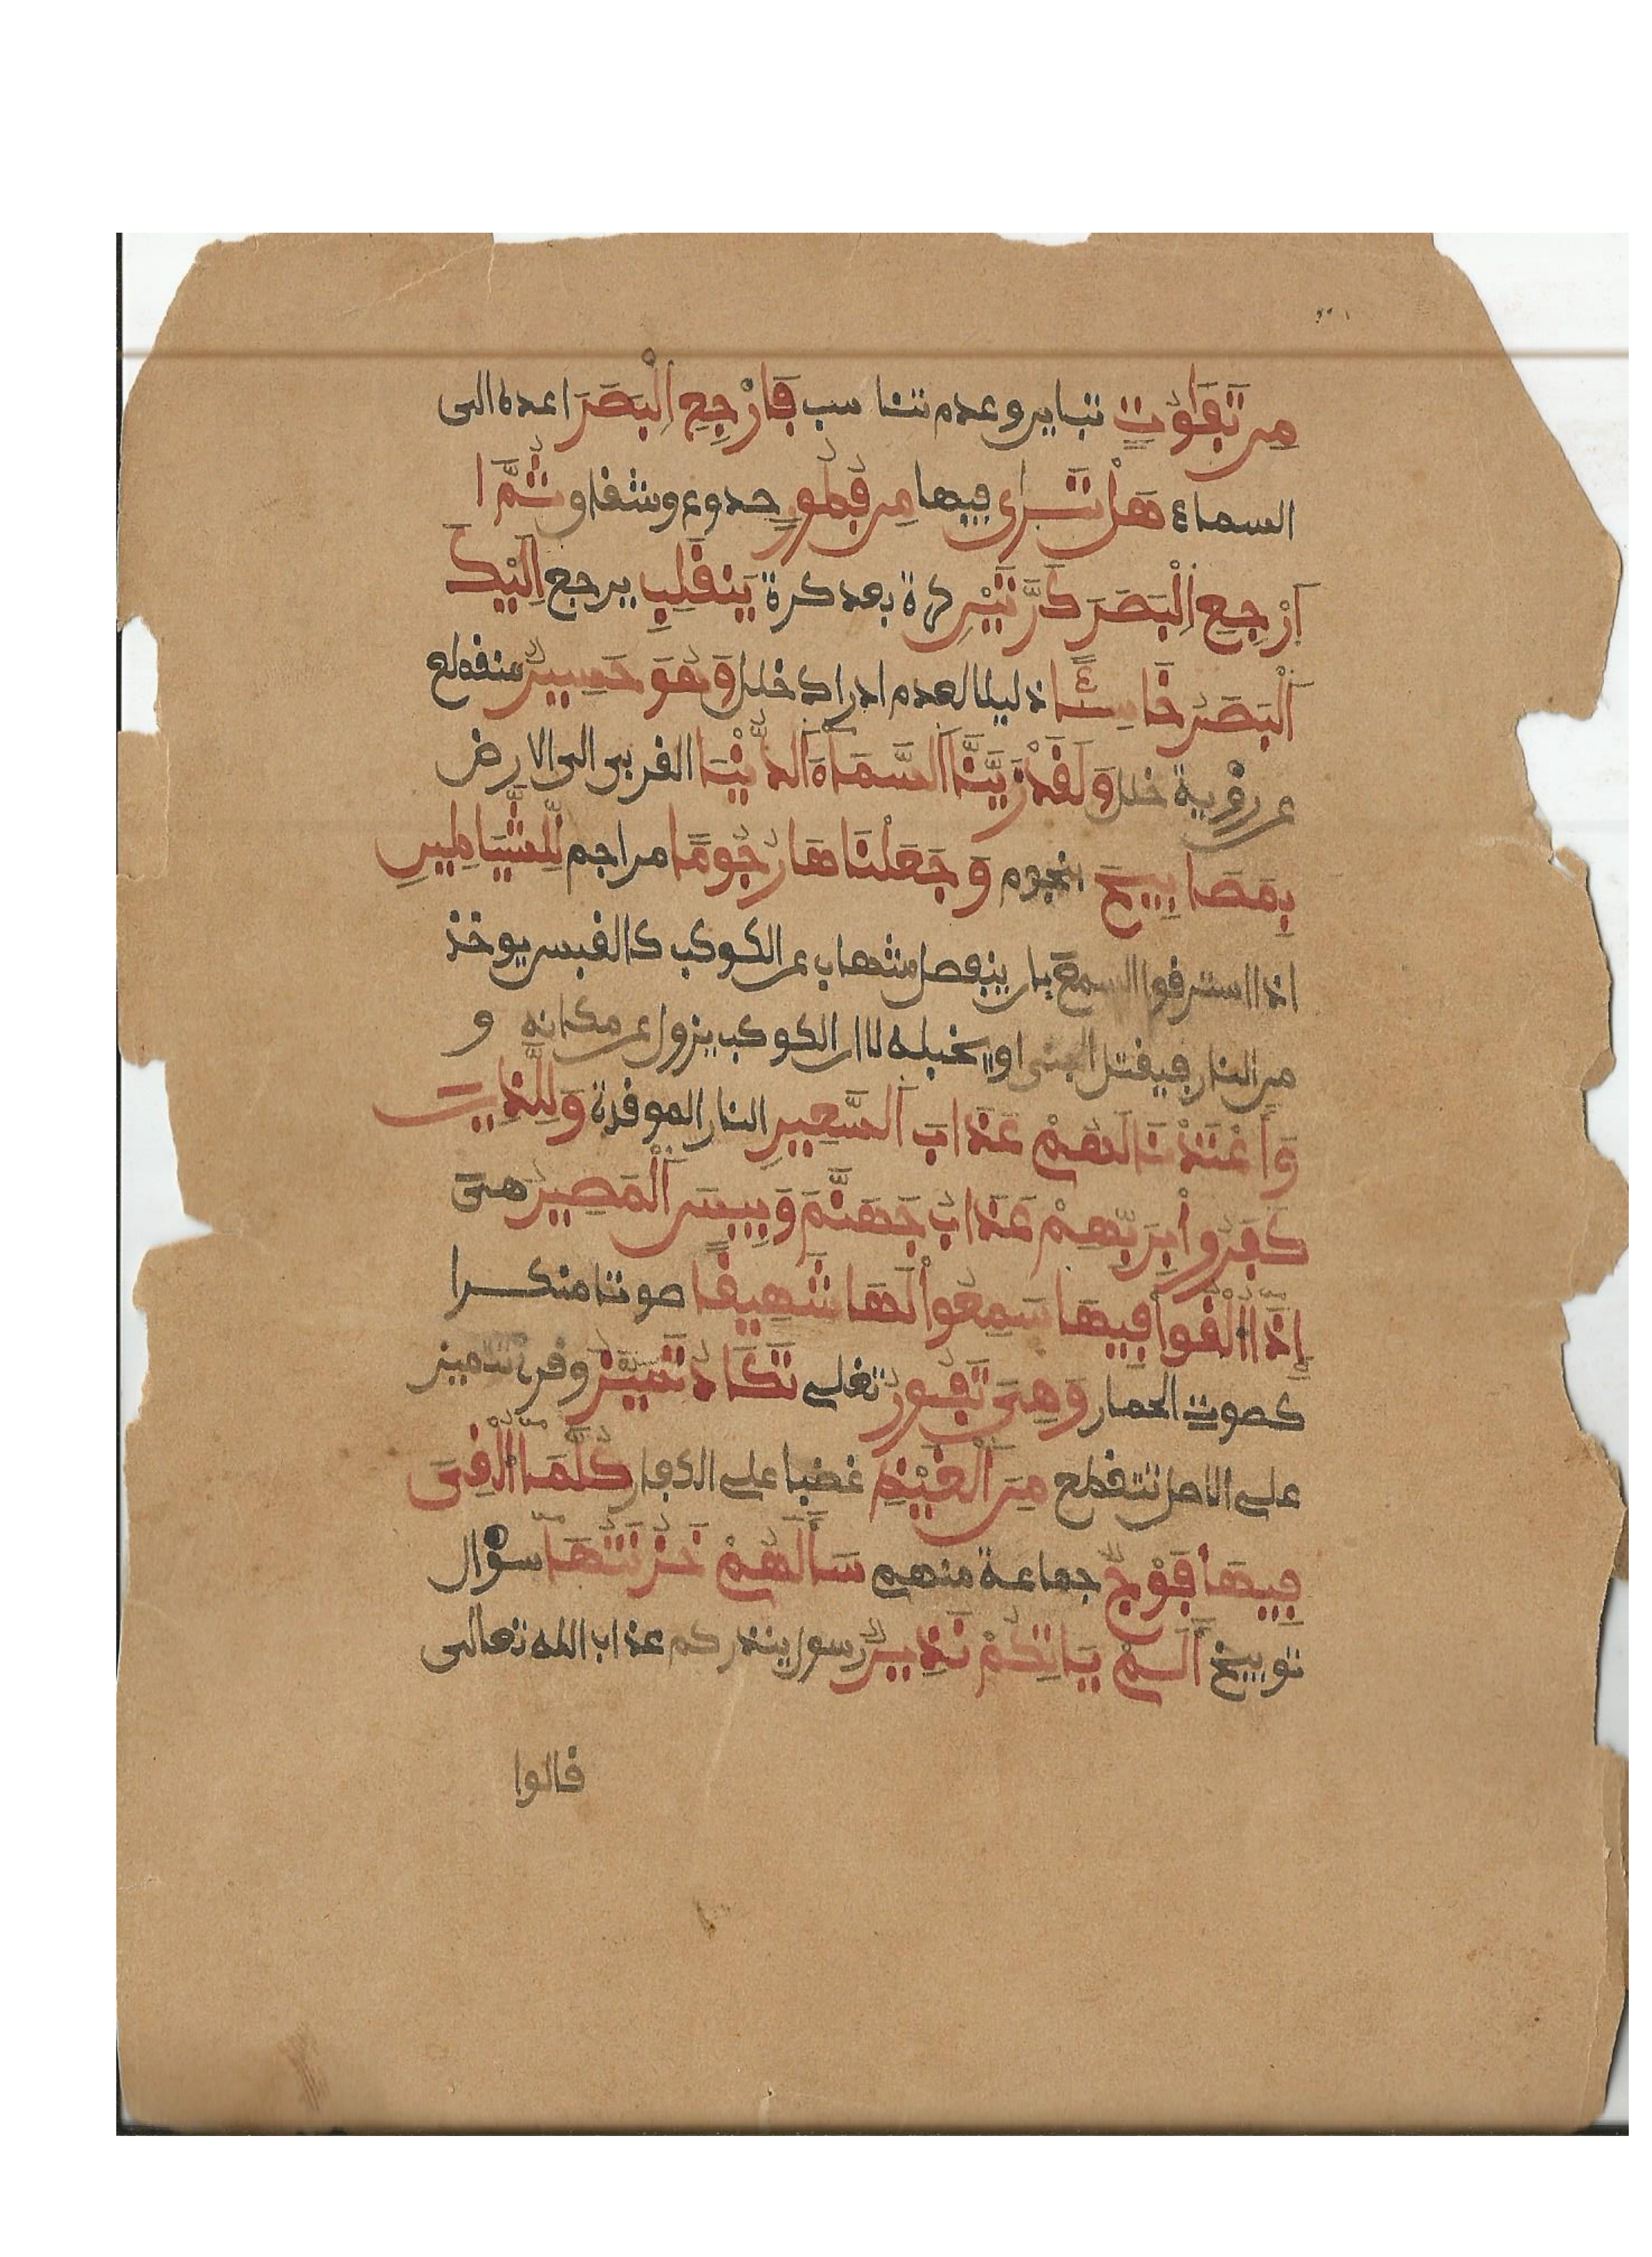 مِن تَفَاوُتٍ تباين وعدم تناسب فَارْجِعِ اِلْبَصَرَ اعده الى
السماء هَلْ تَرَىٰ فيها مِن فُطُورٍ صدوع وشقاو ثُمَّ ا
اَرْجِعِ اِلْبَصَرَ كَرَّتَيْنِ كرة بعد كرة يَنقَلِبِ يرجع اِلَيْكَ
اَلْبَصَرُ خَاسِئًا ذليلا لعدم ادراك خلل وَهُوَ حَسِيرٌ منقطع
عن رؤية خلل وَلَقَدْ زَيَّنَّا اَلسَّمَاءَ اَلدُّنْيَا القربى الى الارض
بِمَصَابِيحَ بنجوم وَجَعَلْنَاهَا رُجُومًا مراجم لِّلشَّيَاطِينِ
اذا استرقوا السمع بان ينفصل شهاب عن الكوكب كالقبس يوخذ
من النار فيقتل الجنى او يخبله لا ان الكوكب يزول عن مكانه و
وَأَعْتَدْنَا لَهُمْ عَذَابَ اَلسَّعِيرِ النار الموقدة وَلِلَّذِينَ
كَفَرُواْ بِرَبِّهِمْ عَذَابُ جَهَنَّمَ وَبِيسَ اَلْمَصِيرُ هىَ
إِذَا أُلْقُواْ فِيهَا سَمِعُواْ لَهَا شَهِيقًا صوتا منكرا
كصوت الحمار وَهِىَ تَفُورُ تغلى تَكَادُ تَمَيَّزُ وقرئ تتميز
على الاصل تتقطع مِنَ اَلْغَيْظِ غضبا على الكفار كُلَّمَا أُلْقِىَ
فِيهَا فَوْجٌ جماعة منهم سَأَلَهُمْ خَزَنَتُهَا سؤال
توبيخ أَلَمْ يَاتِكُمْ نَذِيرٌ رسول ينذركم عذاب الله تعالى
قالوا